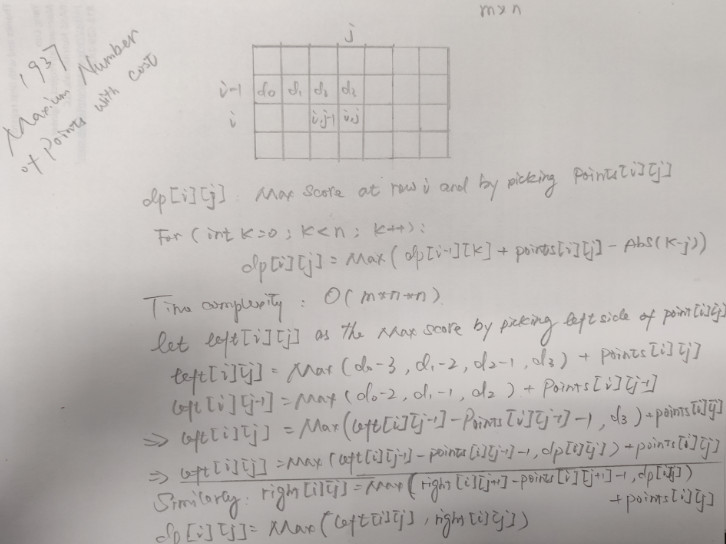 m×n
1937
Maximum Number
of Points with cost
j
i-1 d0 d1 d2 d3
i i,j-1 i,j
dp[i][j]: Max score at row i and by picking points[i][j]
For (int k=0; k<n; k++):
dp[i][j] = Max(dp[i-1][k] + points[i][j] - Abs(k-j))
Time complexity: O(m*n*n)
let left[i][j] as the Max score by picking left side of point[i][j]
left[i][j] = Max(d0-3, d1-2, d2-1, d3) + points[i][j]
left[i][j-1] = Max(d0-2, d1-1, d2) + points[i][j-1]
⇒ left[i][j] = Max(left[i][j-1] - Points[i][j-1] - 1, d3) + points[i][j]
⇒ left[i][j] = Max(left[i][j-1] - points[i][j-1] - 1, dp[i][j]) + points[i][j]
Similarly: right[i][j] = Max(right[i][j+1] - points[i][j+1] - 1, dp[i][j])
+ points[i][j]
dp[i][j] = Max(left[i][j], right[i][j])